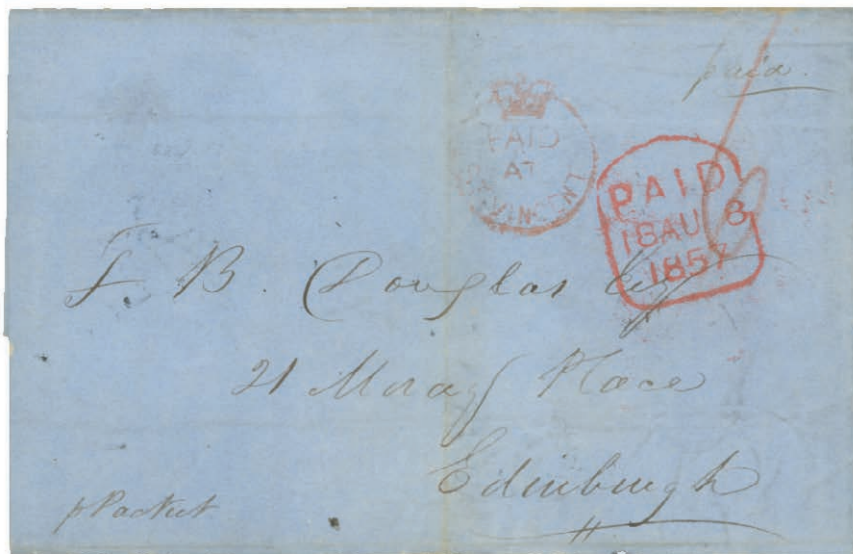 paid.
PAID
AT
ST. VINCENT
PAID
18 AU 18
1857
F. B. Douglas Esq
21 Moray Place
Edinburgh
p Packet